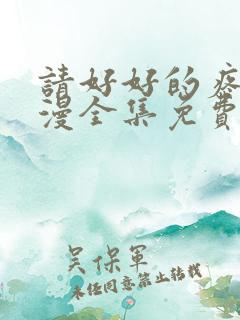 請好好的疼
漫全集免費
吴保軍
未任同意禁止转载